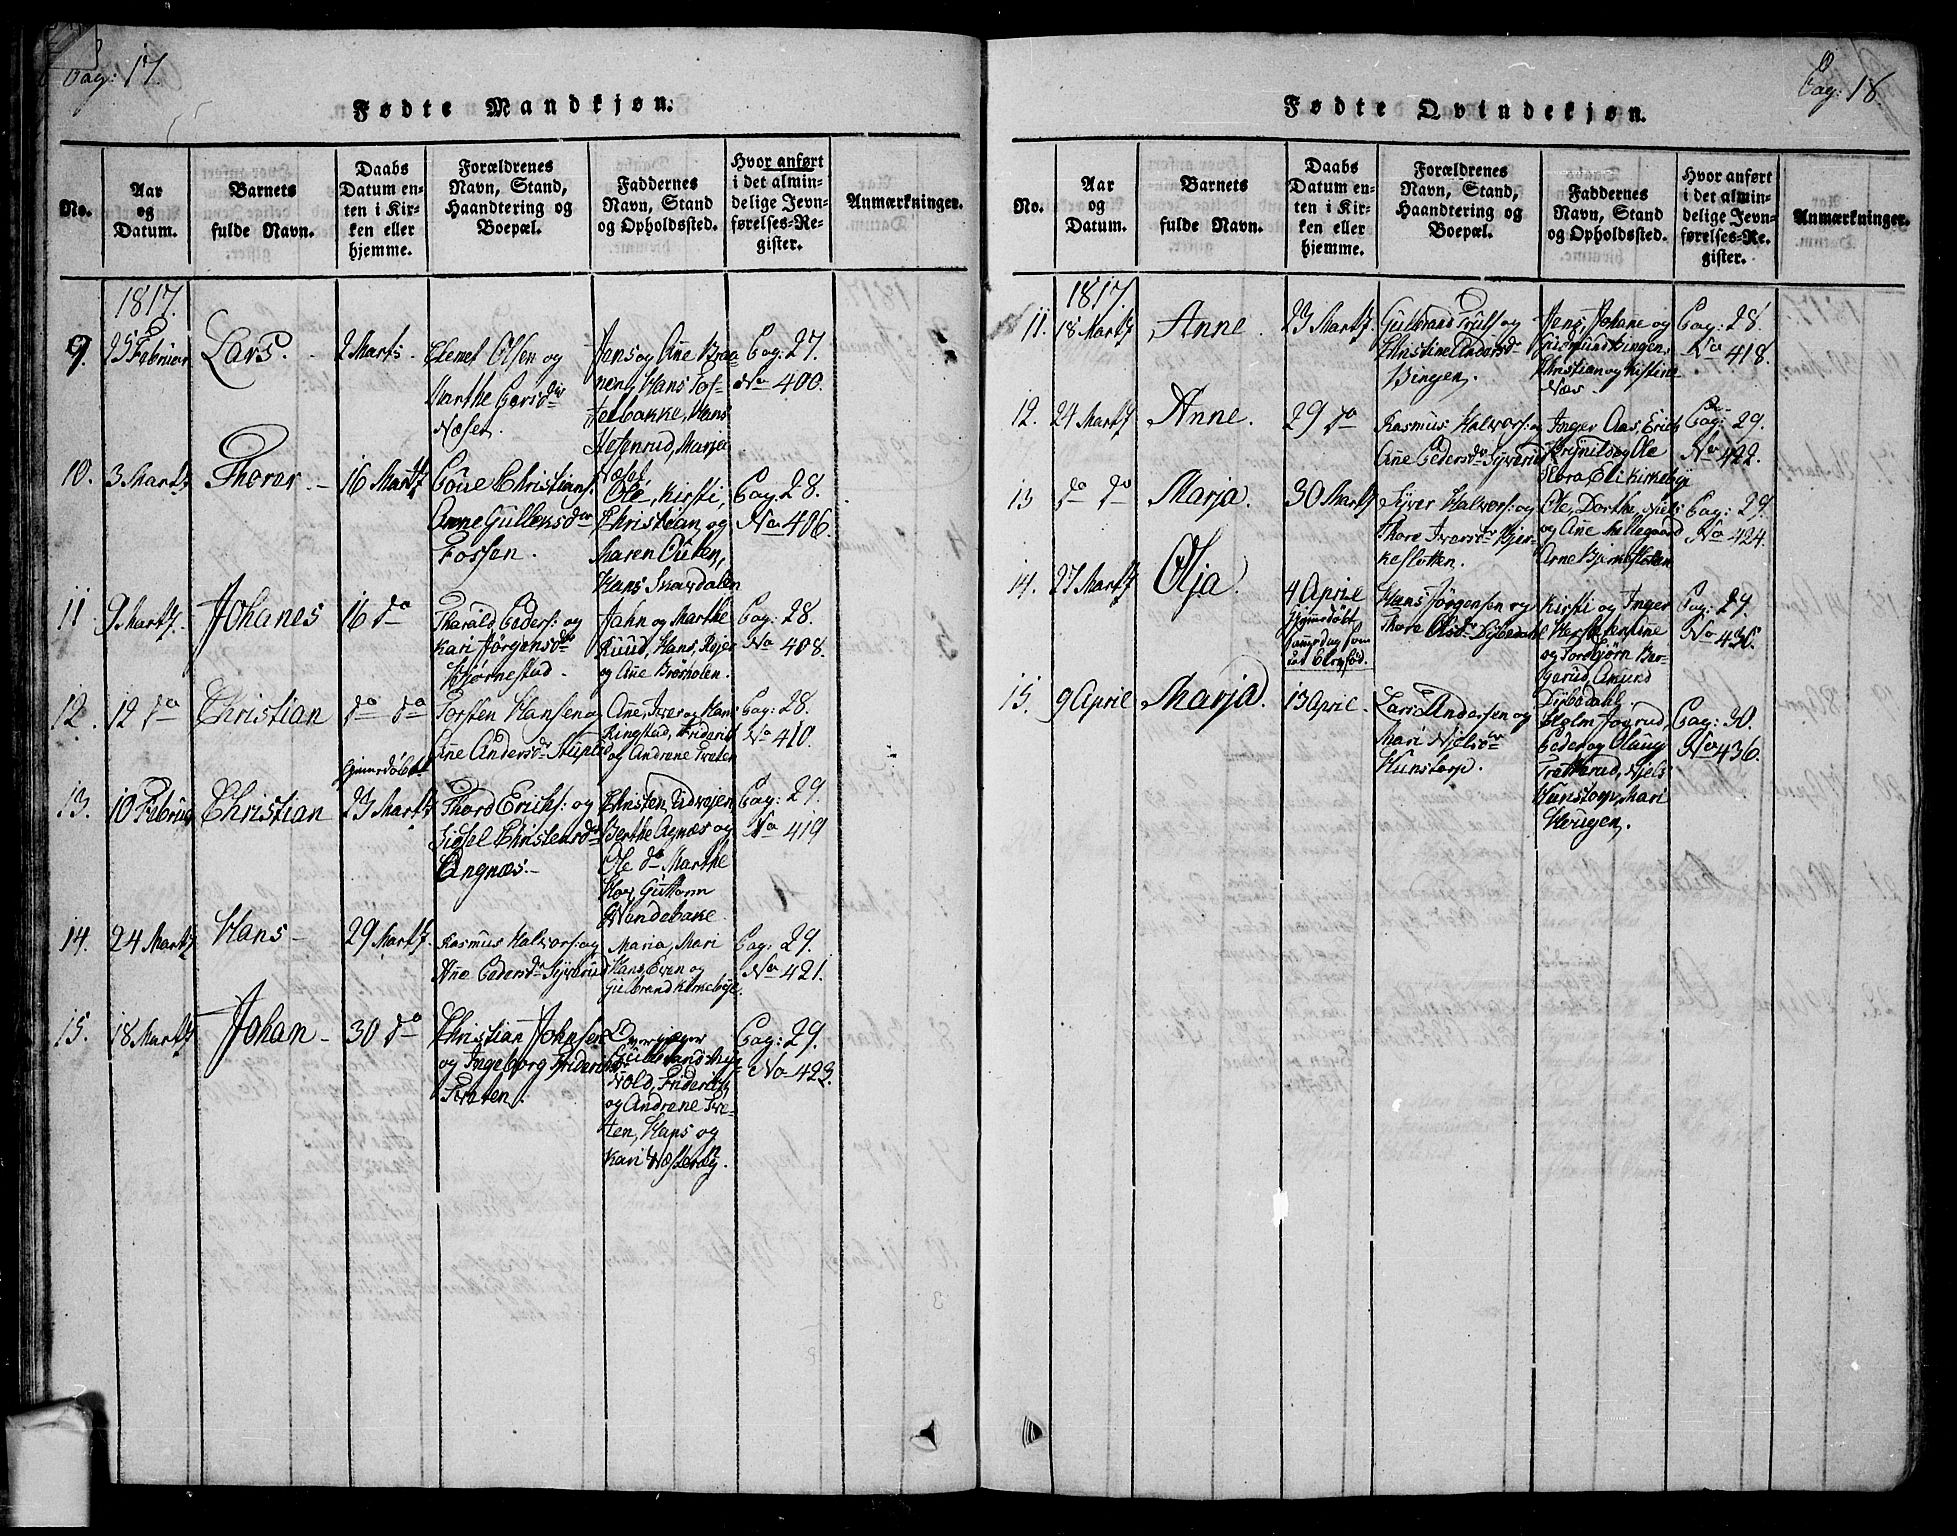 Pag: 17.
Fødte Mandkjøn.
No.
Aar
og
Datum.
Barnets
fulde Navn.
Daabs
Datum en-
ten i Kir-
ken eller
hjemme.
Forældrenes
Navn, Stand,
Haandtering og
Boepæl.
Faddernes
Navn, Stand
og Opholdssted.
Hvor anført
i det almin-
delige Jevn-
førelses-Re-
gister.
Anmærkninger.
1817.
9.
25 Februar
Lars.
2 Marts.
Clemet Olsen og
Marthe Larsdr
Næset.
Jens og Ane Braa-
nen, Hans Tof-
telbakke, Hans
Marja
Næset
Pag: 27.
No 400.
10.
3 Marts
Thorer
16 Marts
Christians.
Anne Gulleksdr
Fossen.
Ole, Kirsti,
Christian og
Maren
Hans Skavdalen
Pag: 28.
No 406.
11
9 Marts.
Johanes
16 do
Harald Peders: og
Kari Jørgensdr
Bjørnestad.
Jahn og Marthe
Ruud, Hans,
og Ane
Pag: 28.
No 408.
12.
12 do
Christian
do do
Torsten Hansen og
Ane Andersdr
Ane, Iver og Hans
Ringstad, Friderik
og Andrene Træten
Pag: 28.
No 410.
13.
10 Februar
Christian
Hjemmedøbt
23 Marts
Thord Ericks: og
Sidsel Christensdr
Angnæs.
Christen
Berthe Agnæs og
Ole do Marthe
Hov, Guttorm
Wendebake.
Pag: 29.
No 419
14.
24 Marts
Hans
29 Marts.
Rasmus Halvors: og
Ane Pedersdr Syverud
Maria, Mari
Hans, Even og
Gulbrand Kirkebye.
Pag: 29.
No 421.
15.
18 Marts
Johan
30 do
Christian Johnsen
og Ingeborg Fridericksdr
Træten.
Gulbrand
Friderich
og Andrene Træ-
ten, Hans og
Kari Westerby.
Pag: 29.
No 423.
Pag: 18.
Fødte Qvindekjøn.
No.
Aar
og
Datum.
Barnets
fulde Navn.
Daabs
Datum en-
ten i Kir-
ken eller
hjemme.
Forældrenes
Navn, Stand,
Haandtering og
Boepæl.
Faddernes
Navn, Stand
og Opholdssted.
Hvor anført
i det almin-
delige Jevn-
førelses-Re-
gister.
Anmærkninger.
1817.
11.
18 Marts
Anne.
23 Marts
Gulbrand Truls og
Christine Andersdr
Bingen.
Jens, Johane og
Gudmund Bingen,
Christian og Kistine
Næs.
Pag: 28.
No 418.
12.
24 Marts
Anne.
29 do
Rasmus Halvors: og
Ane Pedersdr Syverud
Inger Aas, Erick
og Ole
Hora Eli Kirkebye
Pag: 29.
No 422.
13
do do
Marja.
30 Marts
Syver Halvors: og
Thore Iversdr Bjer-
keslotten.
Ole, Dorthe, Niels
og Ane Hellegaard
Arne
Pag: 29.
No 424.
14.
27 Marts
Olja.
4 April
Hjemmedøbt
Hans Jørgensen og
Thore Olsdr Dybedahl
Kirsti og Inger
og Torebjørn
Amund
Dybedahl.
Pag: 29.
No 435.
15.
9 April
Marja.
13 April.
Lars Andersen og
Mari Nielsdr
Hunstorp.
Holm
Peder og Olaug
Trætterud, Niels
Hunstorp, Mari
Haugen.
Pag: 30.
No 436.